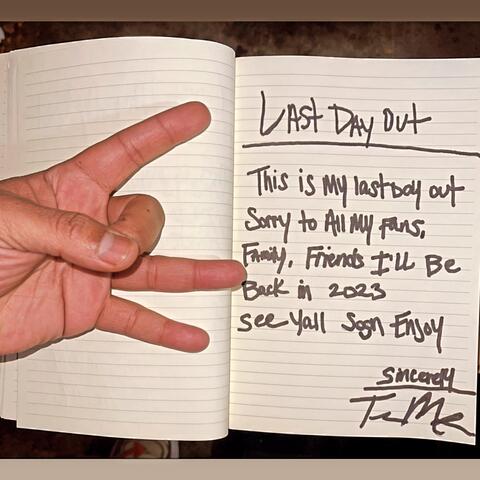 LAST DAY OUT
This is My last Day out
Sorry to All My Fans,
Family, Friends I'll Be
Back in 2023
see Yall Soon Enjoy
Sincerely